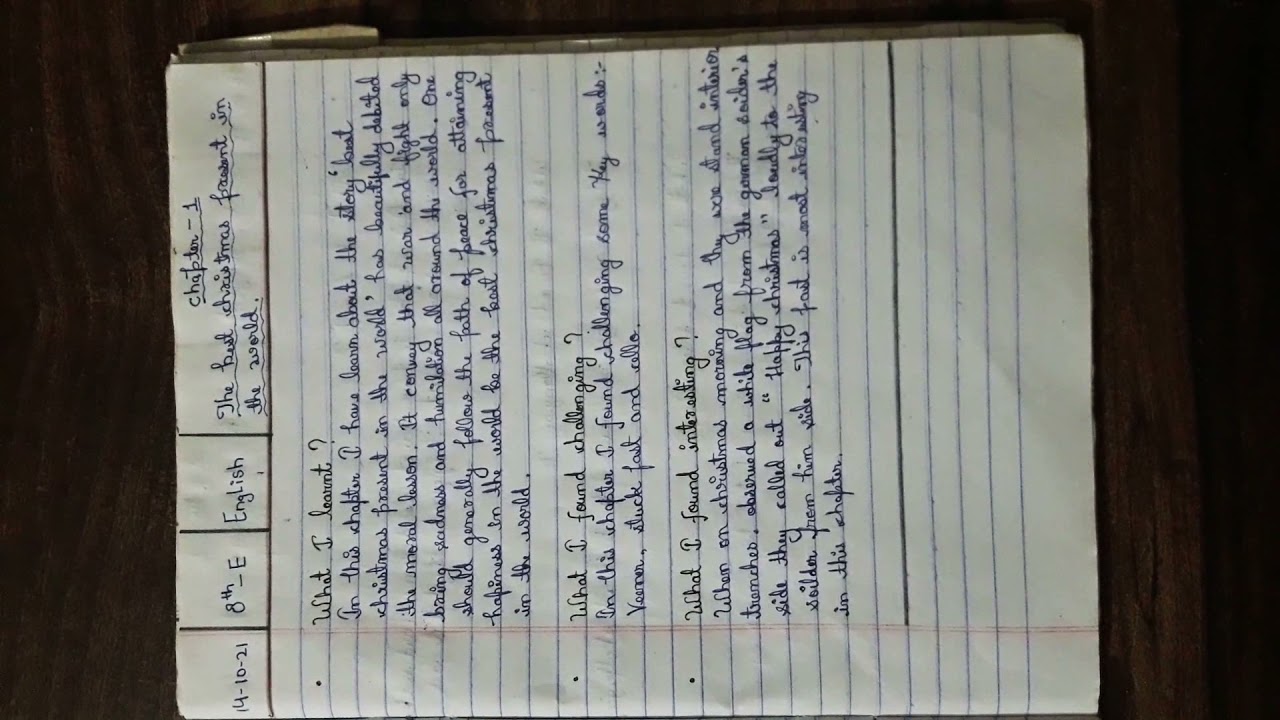 14-10-21
8th-E
English
chapter-1
The best christmas present in
the world.
• What I learnt?
In this chapter I have learn about the story 'best
christmas present in the world' has beautifully debited
the moral lesson. It convey that war and fight only
bring sadness and humilation all around the world. One
should generally follow the path of peace for attaining
hapiness in the world be the best christmas present
in the world.
• What I found challenging?
In this chapter I found challenging some Key words:-
Veener, stuck fast and cello.
• What I found interesting?
When on christmas morning and they were stand interior
trenches. observed a white flag from the german soilder's
side they called out "Happy christmas" loudly to the
soilder from him side. This fact is most interesting
in this chapter.